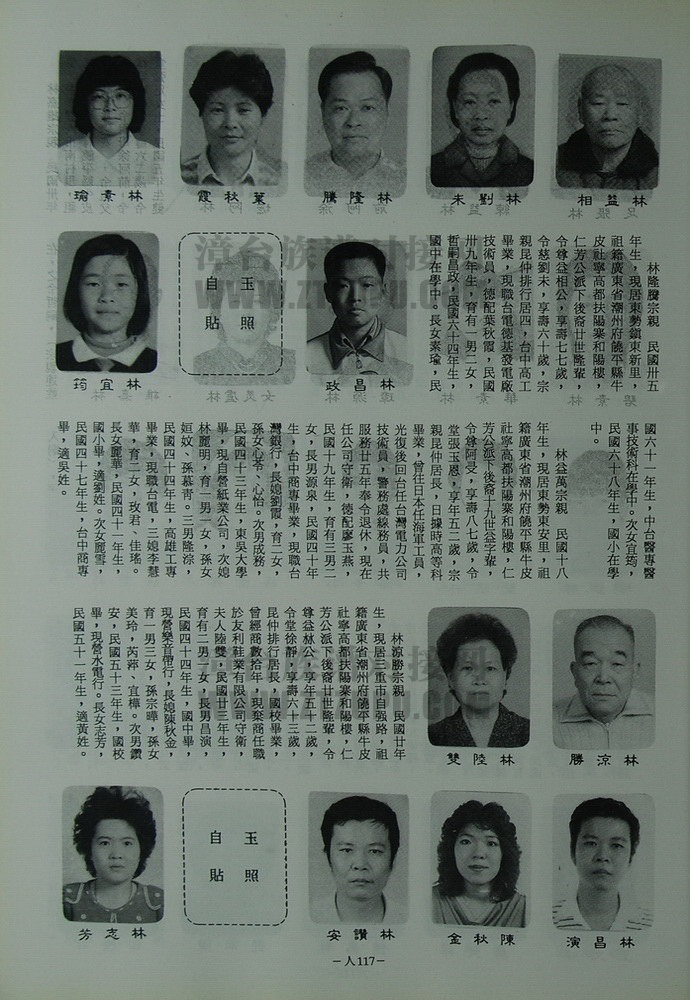 林益相
林劉未
林隆騰
葉秋霞
林素瑜
林昌政
玉照
自貼
林宜筠
林隆騰宗親　民國卅五
年生，現居東勢鎮東新里，
祖籍廣東省潮州府饒平縣牛
皮社寧高都扶陽寨和陽樓，
仁芳公派下後裔廿世隆輩，
令尊益相公，享壽七七歲，
令慈劉未，享壽六十歲，宗
親昆仲排行居四，台中高工
畢業，現職台電德基發電廠
技術員，德配葉秋霞，民國
卅九年生，育有一男二女，
哲嗣昌政，民國六十四年生，
國中在學中。長女素瑜，民
國六十一年生，中台醫專醫
事技術科在學中。次女宜筠，
民國六十八年生，國小在學
中。
林益萬宗親　民國十八
年生，現居東勢東安里，祖
籍廣東省潮州府饒平縣牛皮
社寧高都扶陽寨和陽樓，仁
芳公派下後裔十九世益字輩，
令尊阿受，享壽八七歲，令
堂張玉恩，享年五二歲，宗
親昆仲居長，日據時高等科
畢業，曾往日本任海軍工員，
光復後回台任台灣電力公司
技術員，警務處線務員，共
服務廿五年奉令退休，現在
任公司守衛，德配廖玉燕，
民國十九年生，育有三男二
女，長男源泉，民國四十年
生，台中商專畢業，現職台
灣銀行，長媳劉霞，育二女，
孫女心苓、心怡。次男成務，
民國四十三年生，東吳大學
畢，現自營紙業公司，次媳
林麗明，育一男一女，孫女
姮妏、孫慕青。三男隆淙，
民國四十四年生，高雄工專
畢業，現職台電，三媳李慧
華，育二女，玫君、佳瑤。
長女麗華，民國四十一年生，
國小畢，適劉姓。次女麗雪，
民國四十七年生，台中商專
畢，適吳姓。
林涼勝
林陸雙
林涼勝宗親　民國廿年
生，現居三重市自强路，祖
籍廣東省潮州府饒平縣牛皮
社寧高都扶陽寨和陽樓，仁
芳公派下後裔廿世隆輩，令
尊益林公，享年五十二歲，
令堂徐靜，享壽六十三歲，
昆仲排行居長，國校畢業，
曾經商數拾年，現棄商任職
於友利鞋業有限公司守衛，
夫人陸雙，民國廿三年生，
育有二男一女，長男昌演，
民國四十四年生，國中畢，
現營樂音帶行，長媳陳秋金，
育一男三女，孫宗曄，孫女
美玲，芮萍、宜樺。次男讚
安，民國五十三年生，國校
畢，現營水電行。長女志芳，
民國五十一年生，適黃姓。
林昌演
陳秋金
林讚安
玉照
自貼
林志芳
－人117－